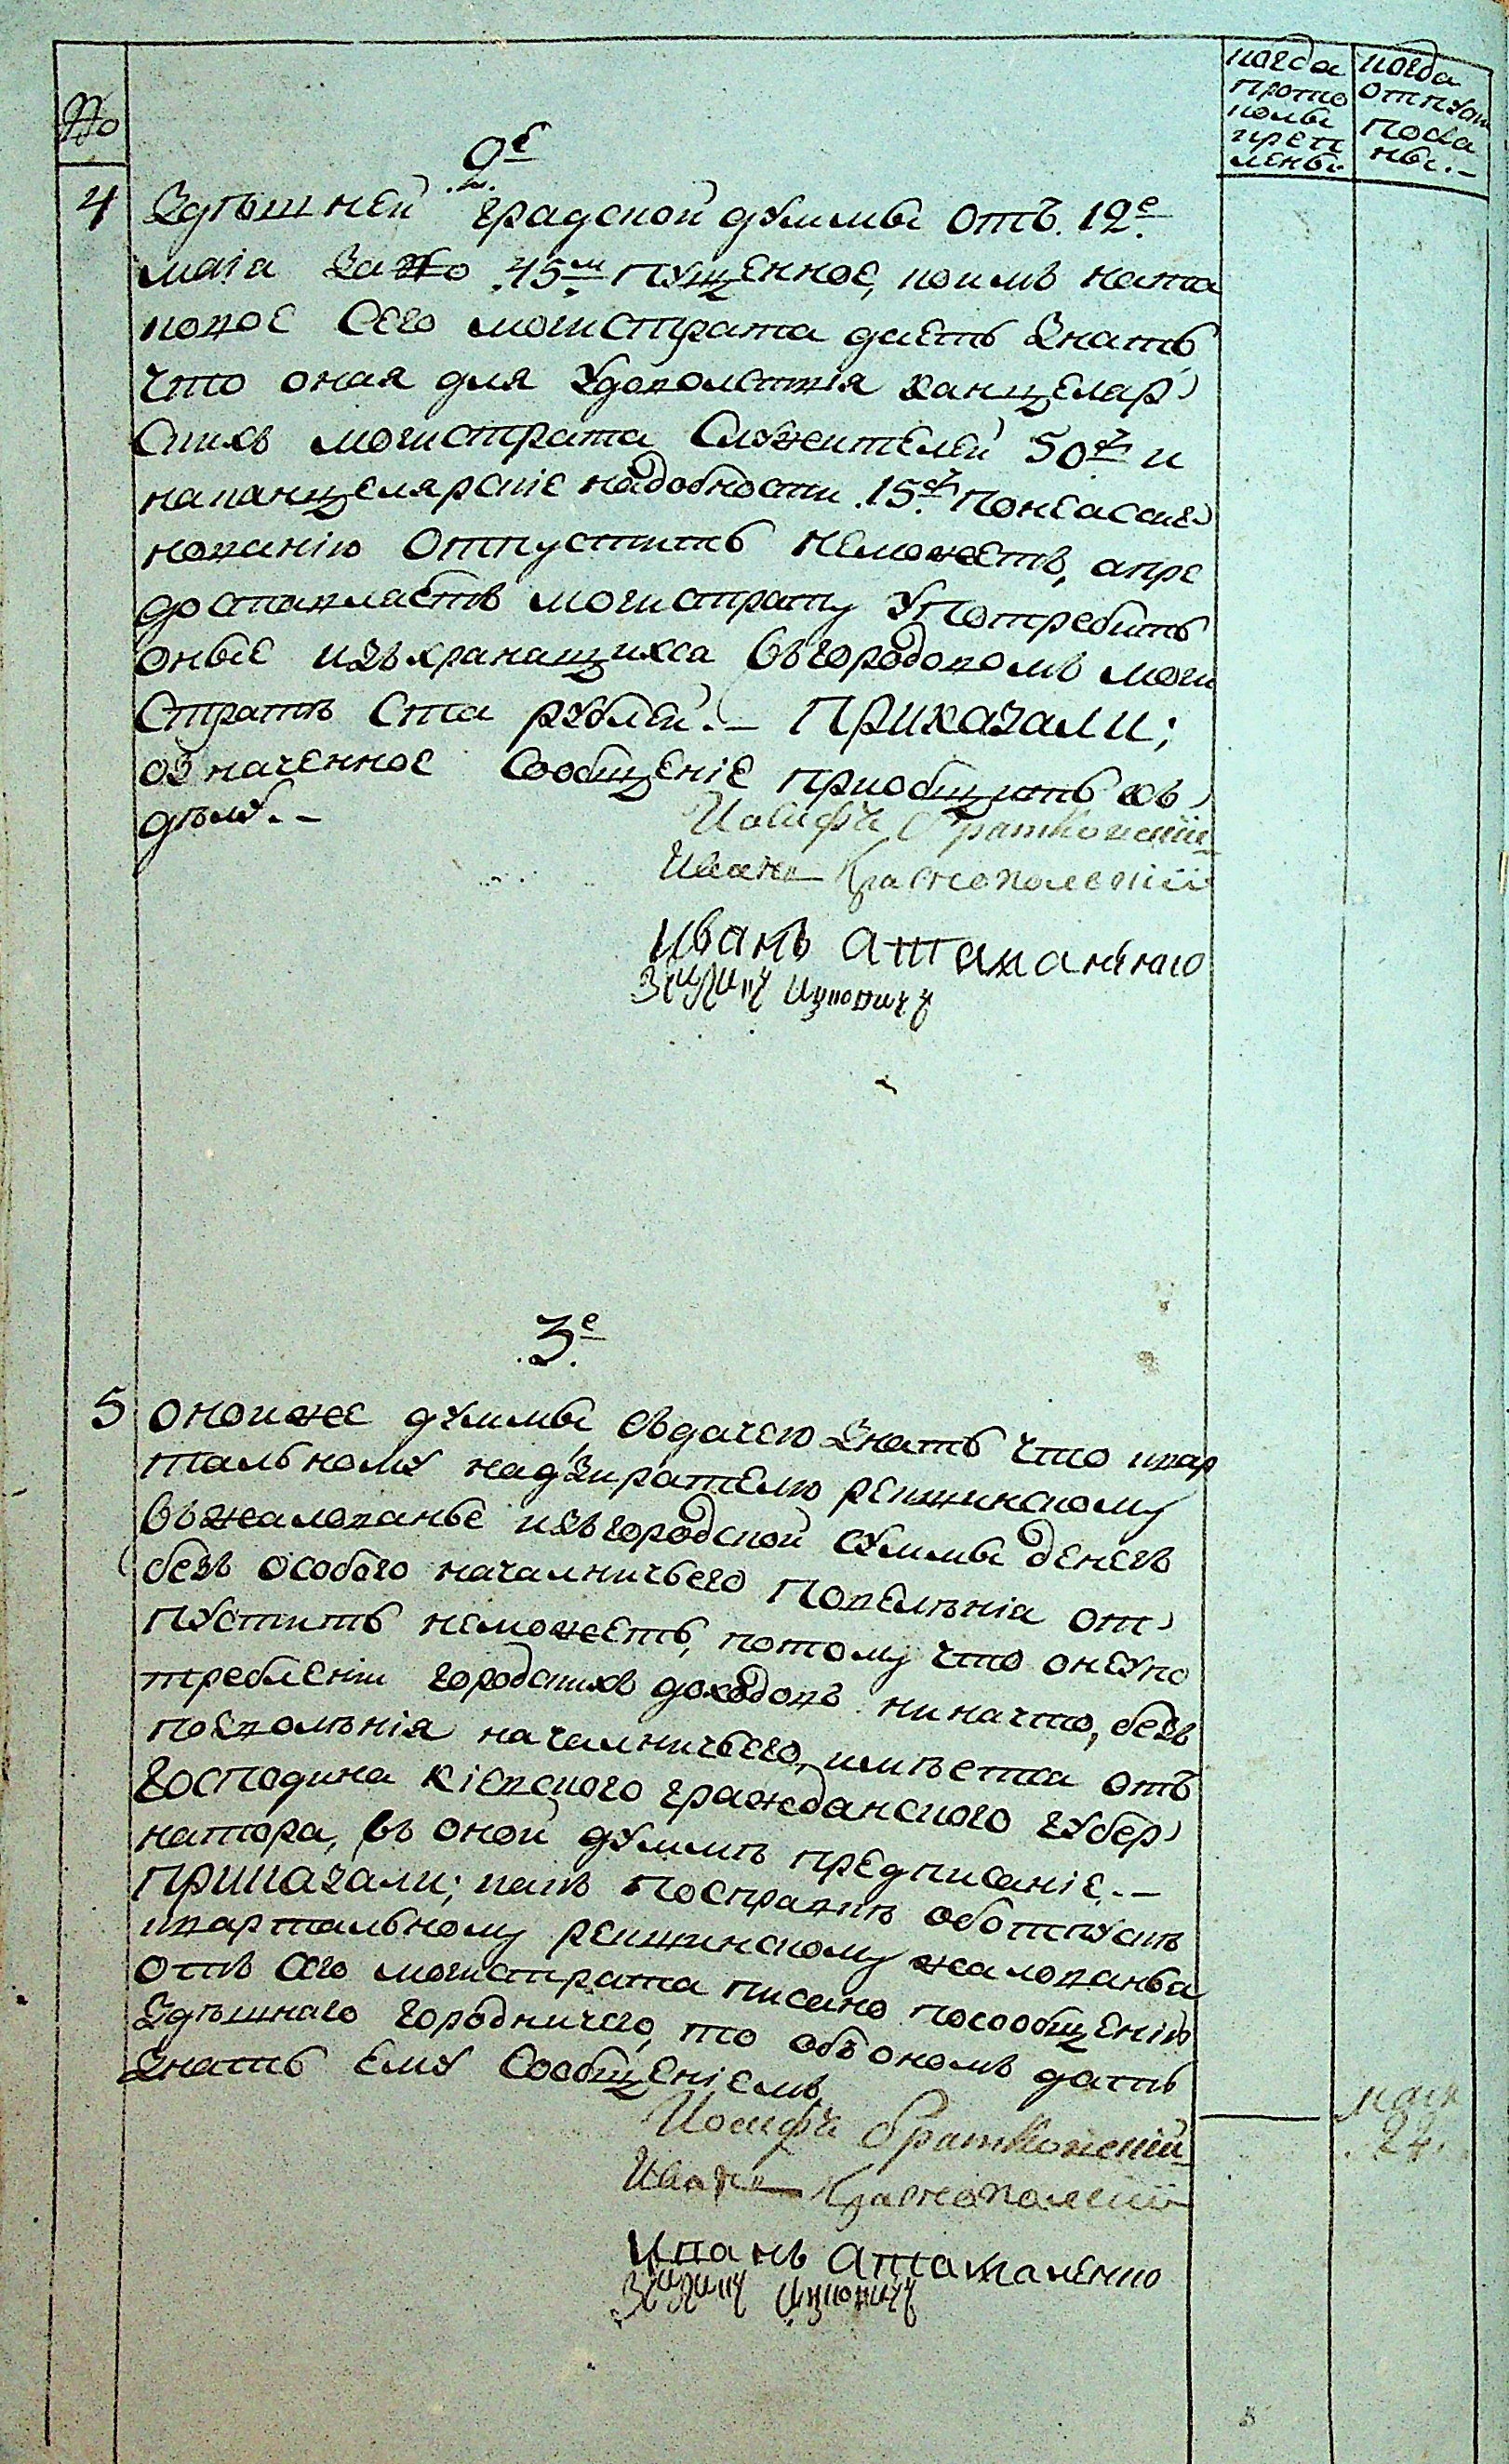 №
когда прото колы креп лены.
когда отпуски посла ны.
2е
4
Здѣшней градской думмы отъ 12е
маіа за № 45м пущенное, коимъ ната
ковое сего магистрата даетъ знать
что оная для удоволствія канцеляр
скихъ магистрата служителей 50 р и
наканцелярскіе надобности 15 р понеассиг
нованію отпустить неможетъ, апре
доставляетъ магистрату употребить
оные изъхранащихса въгородовомъ маги
стратѣ ста рублей. Приказали;
означенное сообщеніе приобщить къ
дѣлу.
Иосифъ Братковскій
Иванъ Краснопольскій
Иванъ Атаманенко
3е
5
оноиже думмы съдачею знать что квар
тальному надзирателю реищинскому
въжалованье изъгородской суммы денегъ
безъ особого началничьего повелѣніа от
пустить неможетъ, потому что онеупо
требленіи городскихъ доходовъ ниначто, безъ
повелѣнія началничьего, имѣетса отъ
господина кіевского гражданского губер
натора, въ оной думмѣ предписаніе.
Приказали; какъ посправкѣ оботпускѣ
квартальному реищинскому жалованьа
отъ сего магистрата писано посообщенію
здѣшнаго городничего, то объономъ дать
знать ему сообщеніемъ
Иосифъ Братковскій
Иванъ Краснопольскій
Иванъ Атаманенко
маія
24.